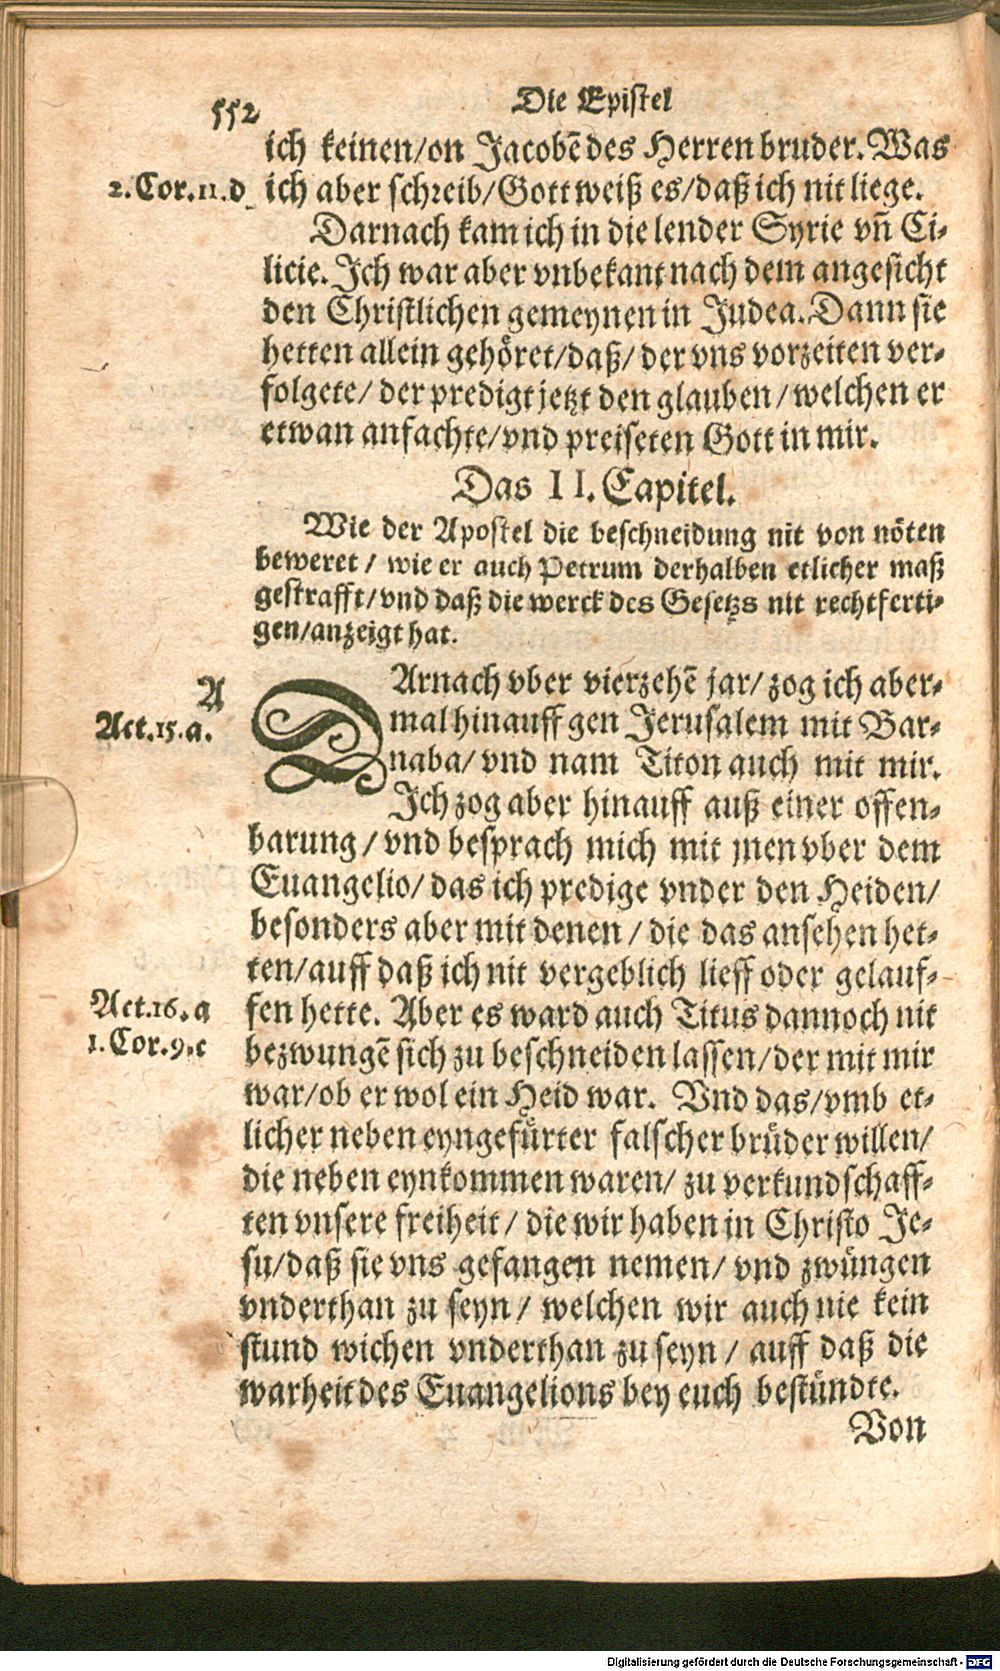 552
Die Epistel
ich keinen/on Jacobẽ des Herren bruder. Was
2. Cor. 11. d
ich aber schreib/Gott weiß es/daß ich nit liege.
Darnach kam ich in die lender Syrie vñ Ci-
licie. Ich war aber vnbekant nach dem angesicht
den Christlichen gemeynen in Judea. Dann sie
hetten allein gehöret/daß/ der vns vorzeiten ver-
folgete/ der predigt jetzt den glauben/welchen er
etwan anfachte/vnd preiseten Gott in mir.
Das II. Capitel.
Wie der Apostel die beschneidung nit von nöten
beweret / wie er auch Petrum derhalben etlicher maß
gestrafft/vnd daß die werck des Gesetzs nit rechtferti-
gen/anzeigt hat.
A
Act. 15. a.
DArnach vber vierzehẽ jar/ zog ich aber-
mal hinauff gen Jerusalem mit Bar-
naba/ vnd nam Titon auch mit mir.
Ich zog aber hinauff auß einer offen-
barung/vnd besprach mich mit jnen vber dem
Euangelio/ das ich predige vnder den Heiden/
besonders aber mit denen / die das ansehen het-
ten/auff daß ich nit vergeblich lieff oder gelauf-
Act. 16. a
fen hette. Aber es ward auch Titus dannoch nit
1. Cor. 9. c
bezwungẽ sich zu beschneiden lassen/der mit mir
war/ob er wol ein Heid war. Vnd das/vmb et-
licher neben eyngefuͤrter falscher bruͤder willen/
die neben eynkommen waren/ zu verkundschaff-
ten vnsere freiheit / die wir haben in Christo Je-
su/daß sie vns gefangen nemen/ vnd zwuͤngen
vnderthan zu seyn / welchen wir auch nie kein
stund wichen vnderthan zu seyn / auff daß die
warheit des Euangelions bey euch bestuͤndte.
Von
Digitalisierung gefördert durch die Deutsche Forschungsgemeinschaft - DFG